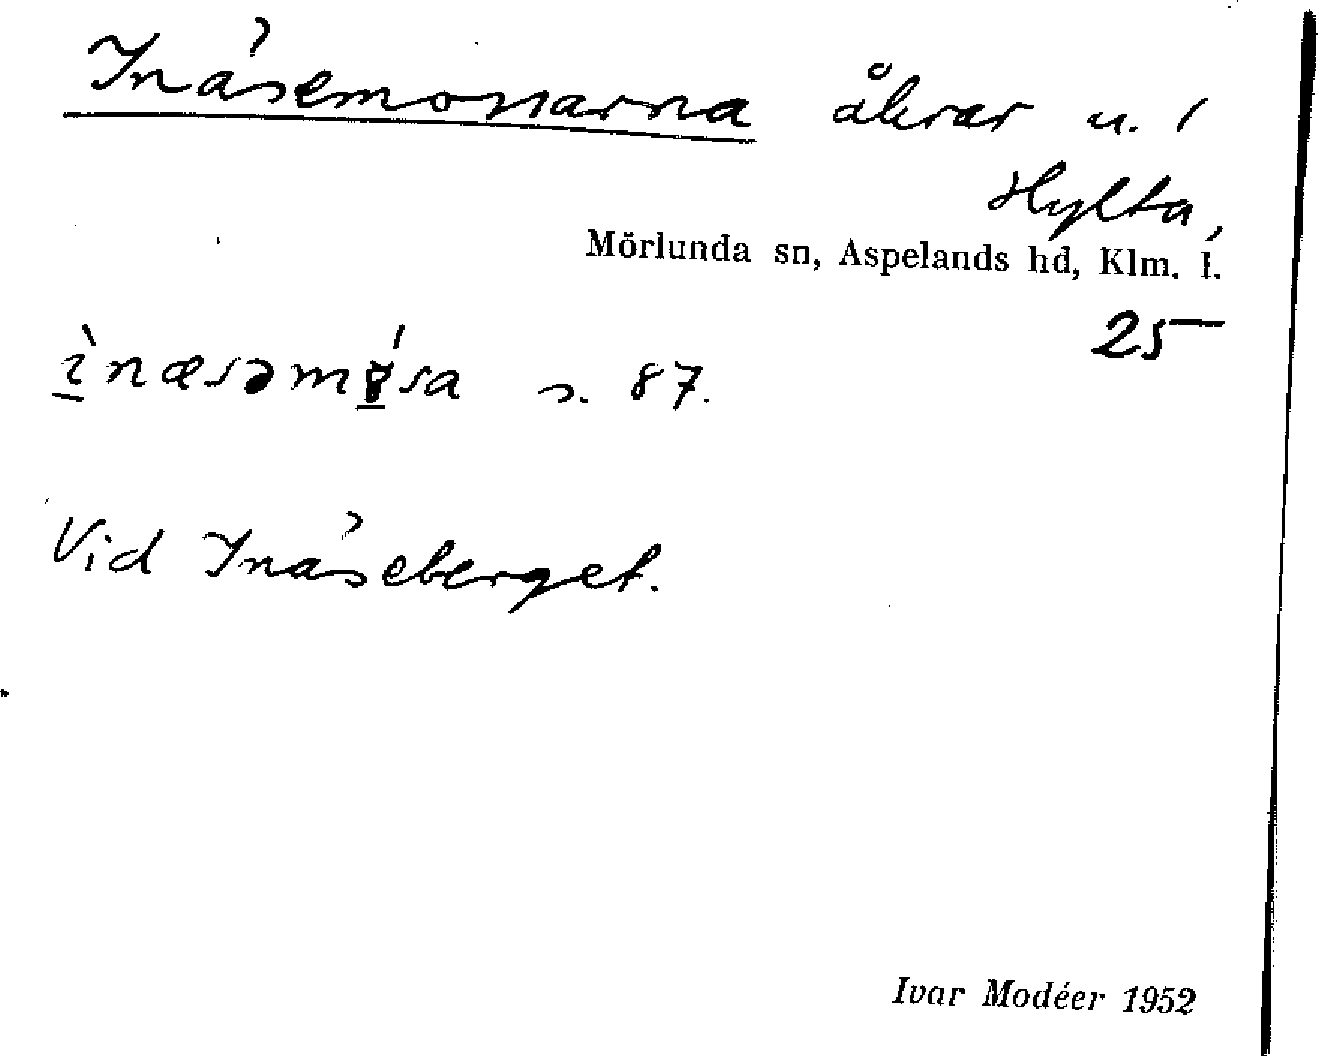 Inåsemossarna åkrar u. i
Hylta,
Mörlunda sn, Aspelands hd, Klm. l.
25
s. 87.
Vid Inåseberget.
Ivar Modéer 1952